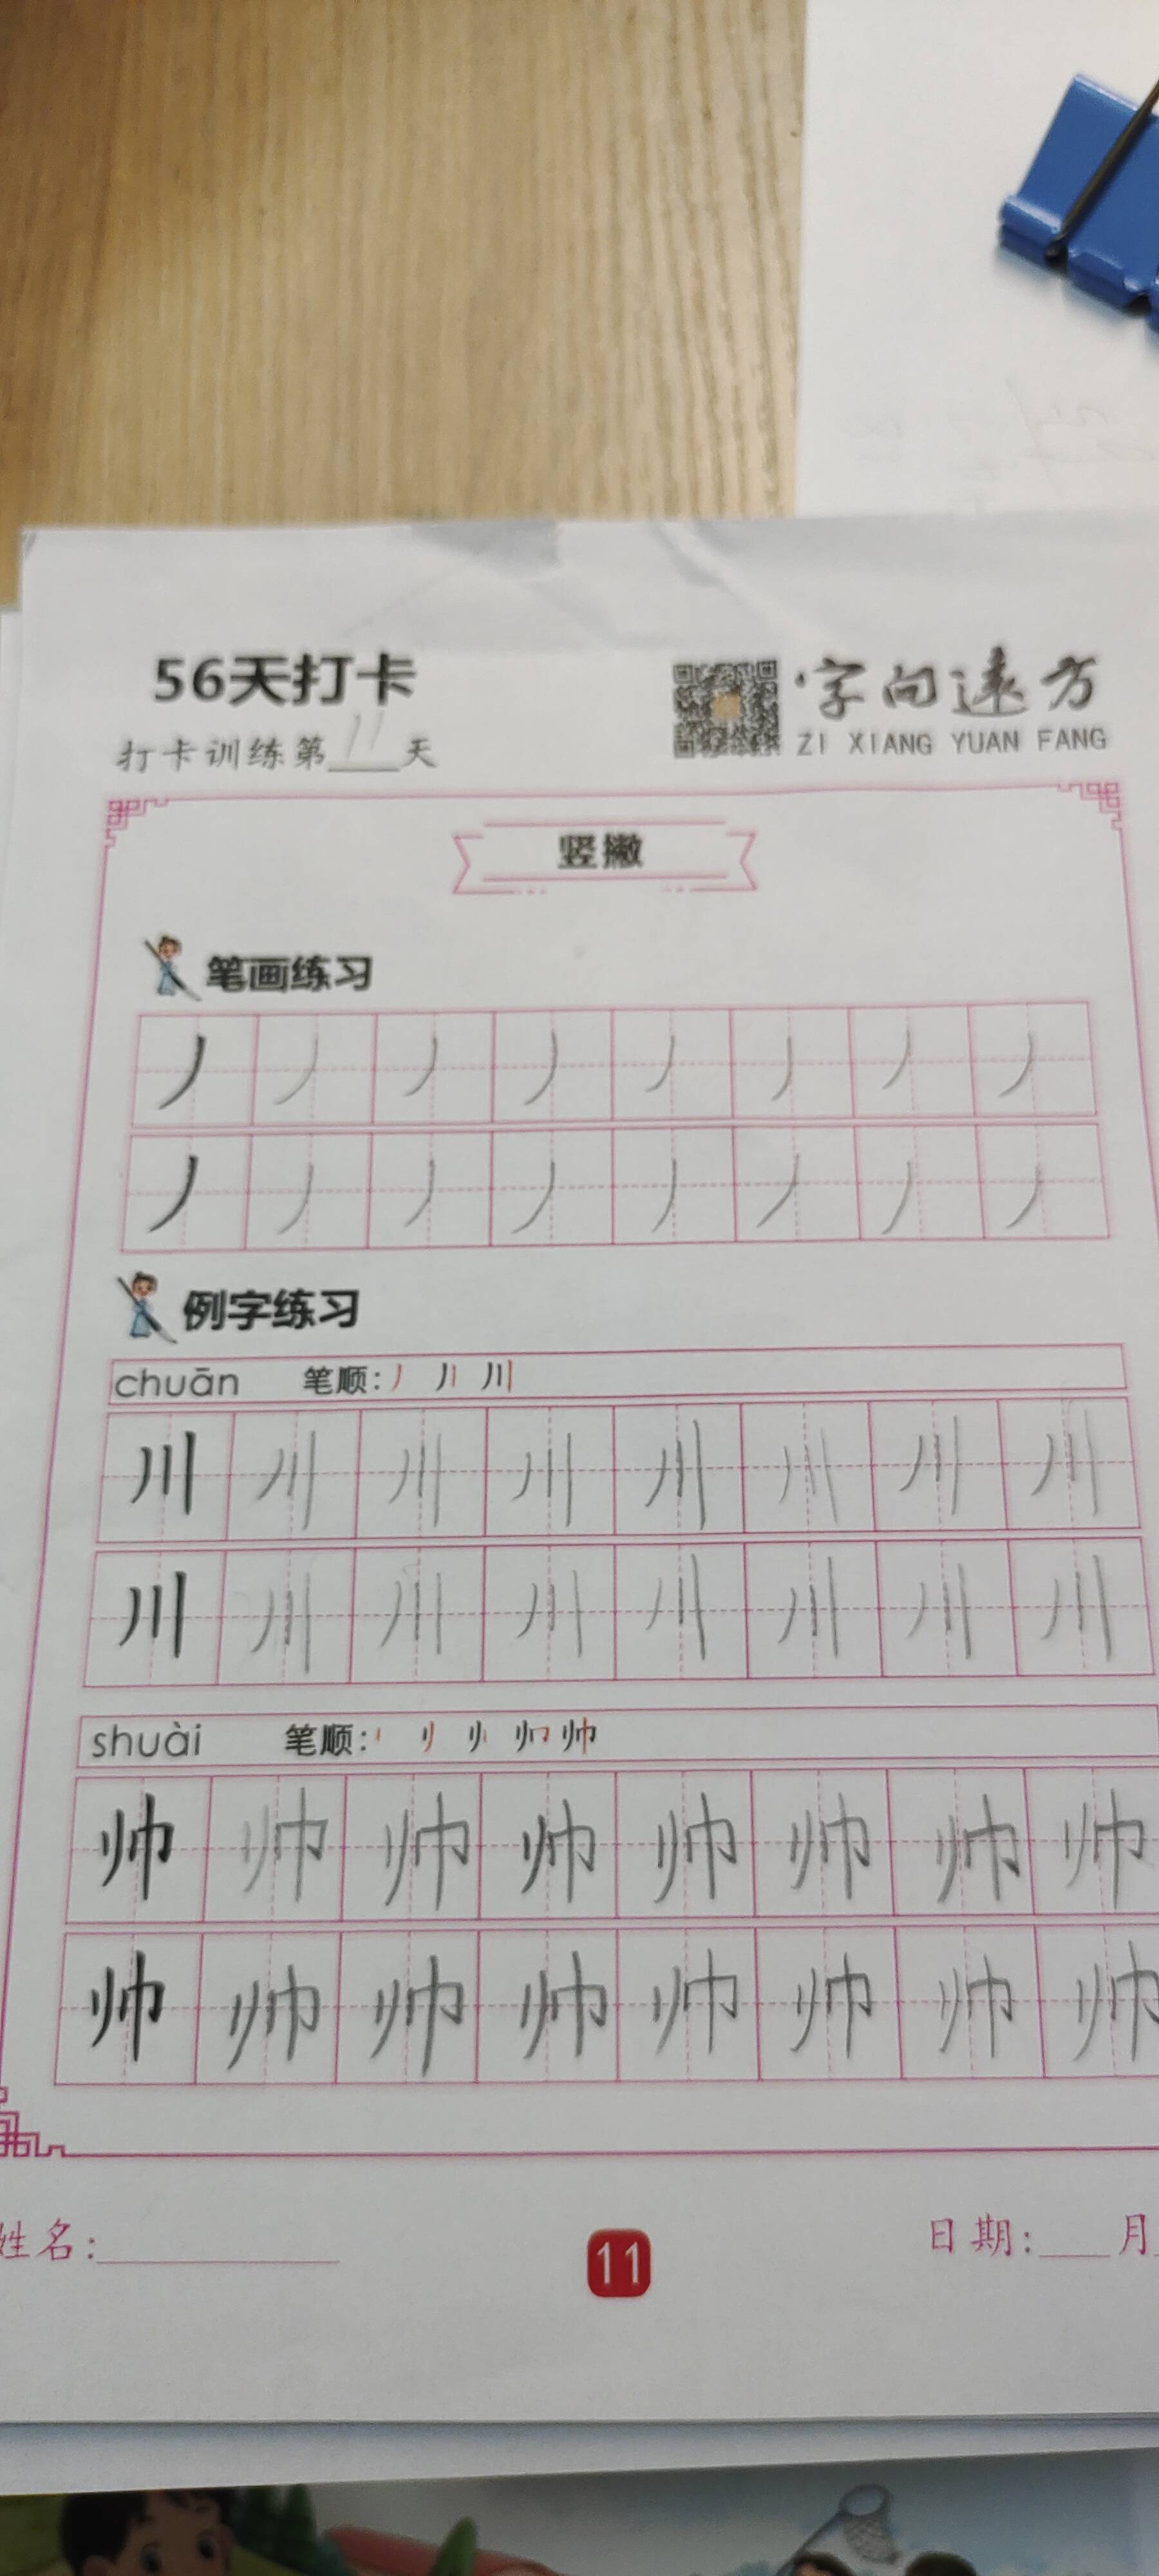 56天打卡
字向远方
打卡训练第11天
ZI XIANG YUAN FANG
竖撇
笔画练习
丿 丿 丿 丿 丿 丿 丿 丿
丿 丿 丿 丿 丿 丿 丿 丿
例字练习
chuān 笔顺: 丿 丿丨 川
川 川 川 川 川 川 川 川
川 川 川 川 川 川 川 川
shuài 笔顺: 帅
帅 帅 帅 帅 帅 帅 帅 帅
帅 帅 帅 帅 帅 帅 帅 帅
姓名:
日期: 月
11